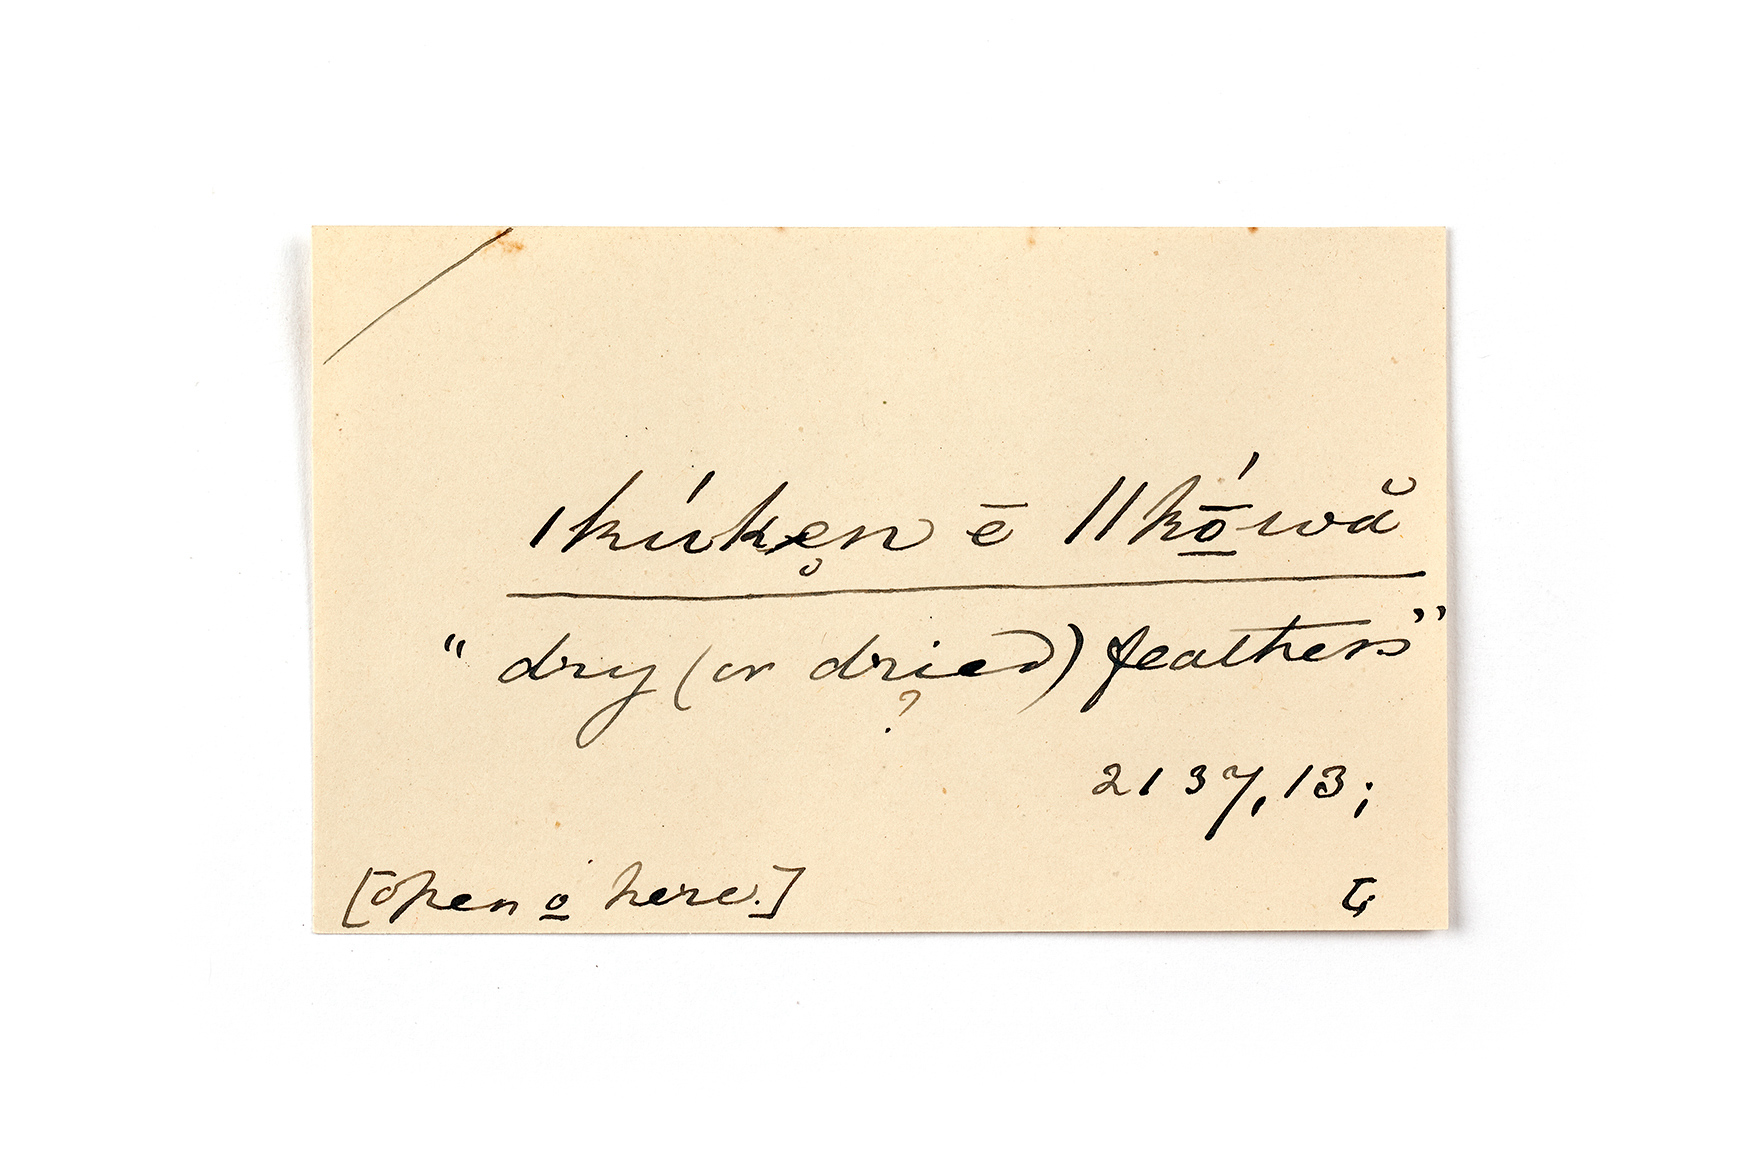 ǀkúken̥ ē ǁkṓ̱wă
“dry (or dried) feathers”
?
2137,13;
[open o̱ here.]